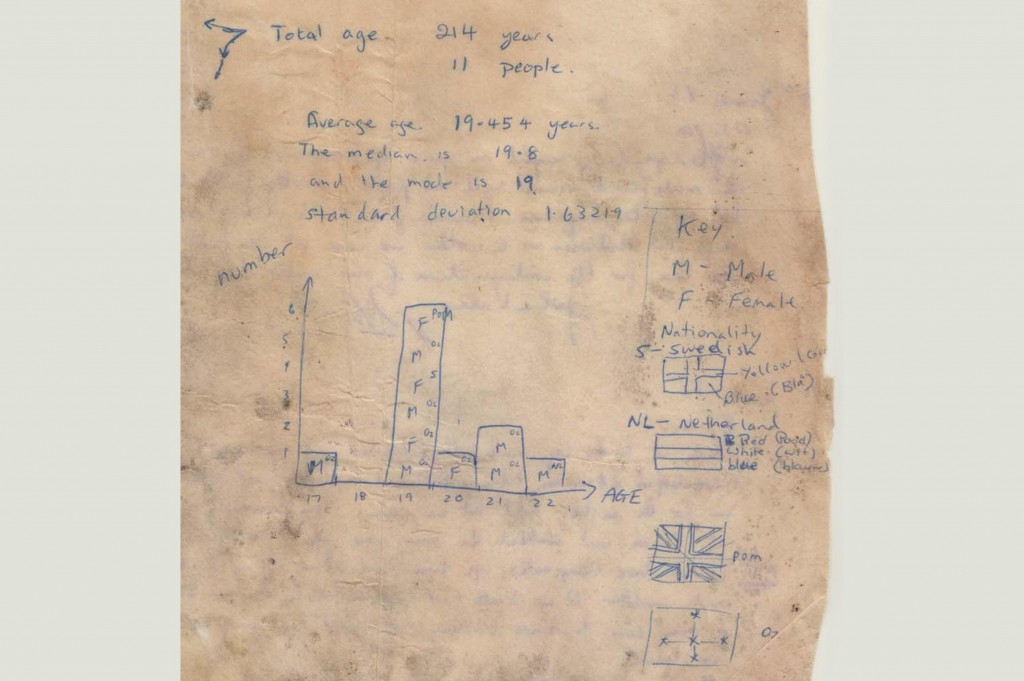 Total age. 214 years
11 people.
Average age. 19.454 years.
The median is 19.8
and the mode is 19
standard deviation 1.63219
Key
M - Male
F - Female
Nationality
S - Swedish
Yellow
Blue (Bla)
NL - Netherland
Red (Rood)
White (Wit)
blue
pom
Oz
number
6
5
4
3
2
1
F Pom
M Oz
F S
M Oz
F Oz
M Oz
M Oz
F Oz
M Oz
M Oz
M NL
17 18 19 20 21 22
AGE